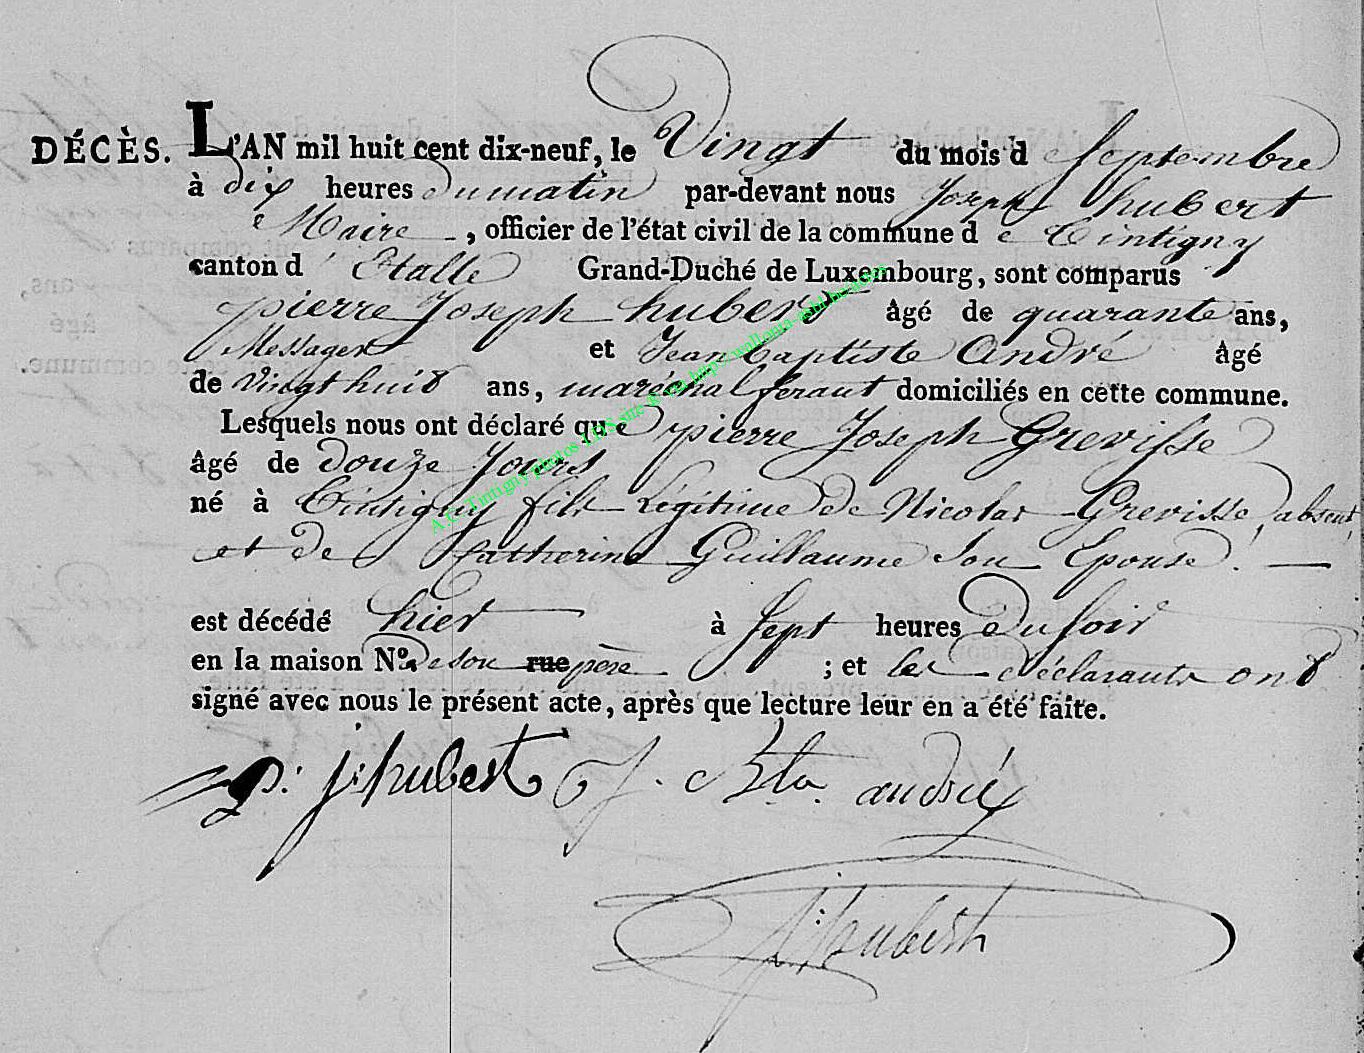 DÉCÈS. L'AN mil huit cent dix-neuf, le Vingt du mois d Septembre
à dix heures du matin par-devant nous Joseph hubert
Maire, officier de l'état civil de la commune d e Tintigny
canton d' Etalle Grand-Duché de Luxembourg, sont comparus
pierre Joseph hubert âgé de quarante ans,
Messager et Jean baptiste André âgé
de Vingt huit ans, maréchal feraut domiciliés en cette commune.
Lesquels nous ont déclaré que pierre Joseph Grevisse
âgé de douze Jours
né à Tintigny fils Légitime de Nicolas Grevisse, absent,
et de Catherine Guillaume son Epouse. —
est décédé hier à Sept heures du soir
en la maison N.º de son rue père ; et les déclarants ont
signé avec nous le présent acte, après que lecture leur en a été faite.
p: j: hubert J. Bte. andré
j: hubert
A.C. Tintigny photos LDS site